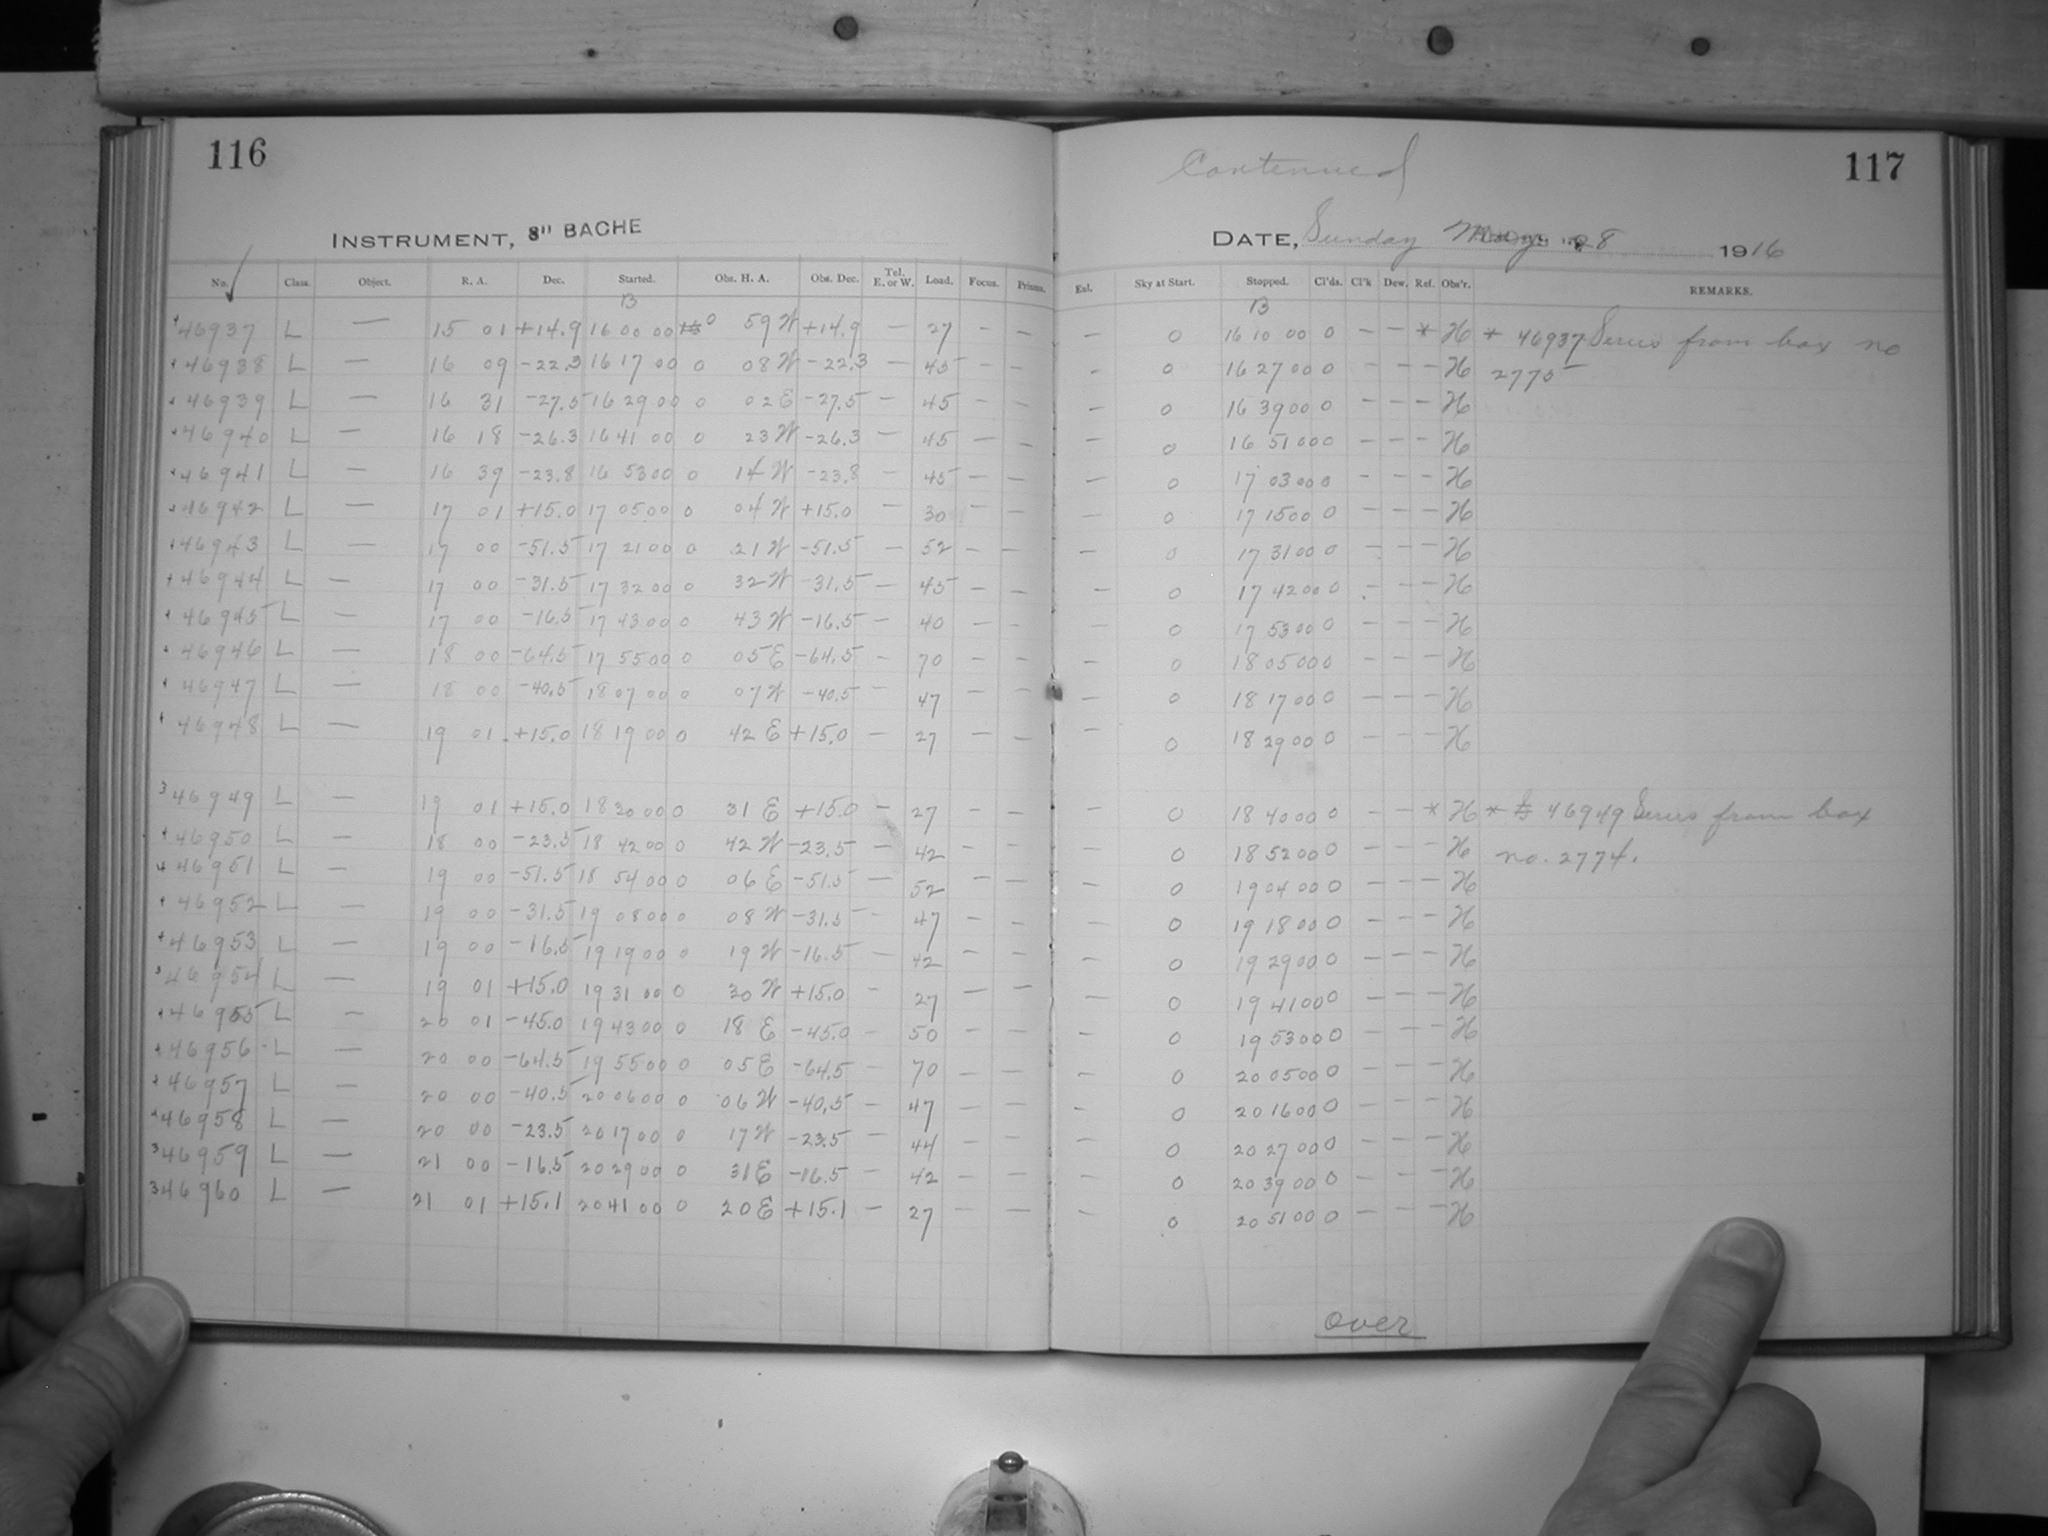 116
INSTRUMENT, 8" BACHE
No. Class. Object. R. A. Dec. Started. Obs. H. A. Obs. Dec. Tel. E. or W. Load. Focus. Prisms.
B
46937 L — 15 01 +14.9 16 00 00 0 59 W +14.9 — 27 — —
46938 L — 16 09 -22.3 16 17 00 0 08 W -22.3 — 45 — —
46939 L — 16 31 -27.5 16 29 00 0 02 E -27.5 — 45 — —
46940 L — 16 18 -26.3 16 41 00 0 23 W -26.3 — 45 — —
46941 L — 16 39 -23.8 16 53 00 0 14 W -23.8 — 45 — —
46942 L — 17 01 +15.0 17 05 00 0 04 W +15.0 — 30 — —
46943 L — 17 00 -51.5 17 21 00 0 21 W -51.5 — 52 — —
46944 L — 17 00 -31.5 17 32 00 0 32 W -31.5 — 45 — —
46945 L — 17 00 -16.5 17 43 00 0 43 W -16.5 — 40 — —
46946 L — 18 00 -64.5 17 55 00 0 05 E -64.5 — 70 — —
46947 L — 18 00 -40.5 18 07 00 0 07 W -40.5 — 47 — —
46948 L — 19 01 +15.0 18 19 00 0 42 E +15.0 — 27 — —
3 46949 L — 19 01 +15.0 18 30 00 0 31 E +15.0 — 27 — —
46950 L — 18 00 -23.5 18 42 00 0 42 W -23.5 — 42 — —
46951 L — 19 00 -51.5 18 54 00 0 06 E -51.5 — 52 — —
46952 L — 19 00 -31.5 19 08 00 0 08 W -31.5 — 47 — —
46953 L — 19 00 -16.5 19 19 00 0 19 W -16.5 — 42 — —
3 46954 L — 19 01 +15.0 19 31 00 0 30 W +15.0 — 27 — —
46955 L — 20 01 -45.0 19 43 00 0 18 E -45.0 — 50 — —
46956 L — 20 00 -64.5 19 55 00 0 05 E -64.5 — 70 — —
46957 L — 20 00 -40.5 20 06 00 0 06 W -40.5 — 47 — —
46958 L — 20 00 -23.5 20 17 00 0 17 W -23.5 — 44 — —
3 46959 L — 21 00 -16.5 20 29 00 0 31 E -16.5 — 42 — —
3 46960 L — 21 01 +15.1 20 41 00 0 20 E +15.1 — 27 — —
Continued
117
DATE, Sunday May 28 1916
Enl. Sky at Start. Stopped. Cl'ds. Cl'k Dew. Ref. Obs'r. REMARKS.
B
— 0 16 10 00 0 — — * H * 46937 Series from box no
— 0 16 27 00 0 — — — H 2775
— 0 16 39 00 0 — — — H
— 0 16 51 00 0 — — — H
— 0 17 03 00 0 — — — H
— 0 17 15 00 0 — — — H
— 0 17 31 00 0 — — — H
— 0 17 42 00 0 — — — H
— 0 17 53 00 0 — — — H
— 0 18 05 00 0 — — — H
— 0 18 17 00 0 — — — H
— 0 18 29 00 0 — — — H
— 0 18 40 00 0 — — * H * 46949 Series from box
— 0 18 52 00 0 — — — H no. 2774.
— 0 19 04 00 0 — — — H
— 0 19 18 00 0 — — — H
— 0 19 29 00 0 — — — H
— 0 19 41 00 0 — — — H
— 0 19 53 00 0 — — — H
— 0 20 05 00 0 — — — H
— 0 20 16 00 0 — — — H
— 0 20 27 00 0 — — — H
— 0 20 39 00 0 — — — H
— 0 20 51 00 0 — — — H
over